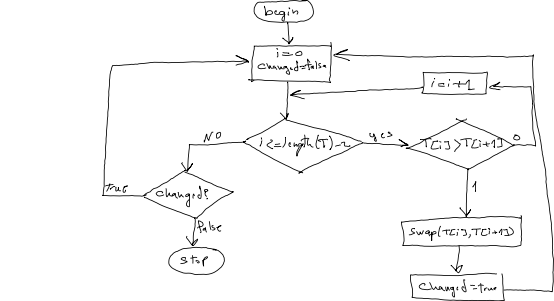 begin
i=0
changed=false
i=i+1
i<=length(T)-2
NO
yes
T[i]>T[i+1]
0
True
changed?
1
false
stop
swap(T[i],T[i+1])
changed=true